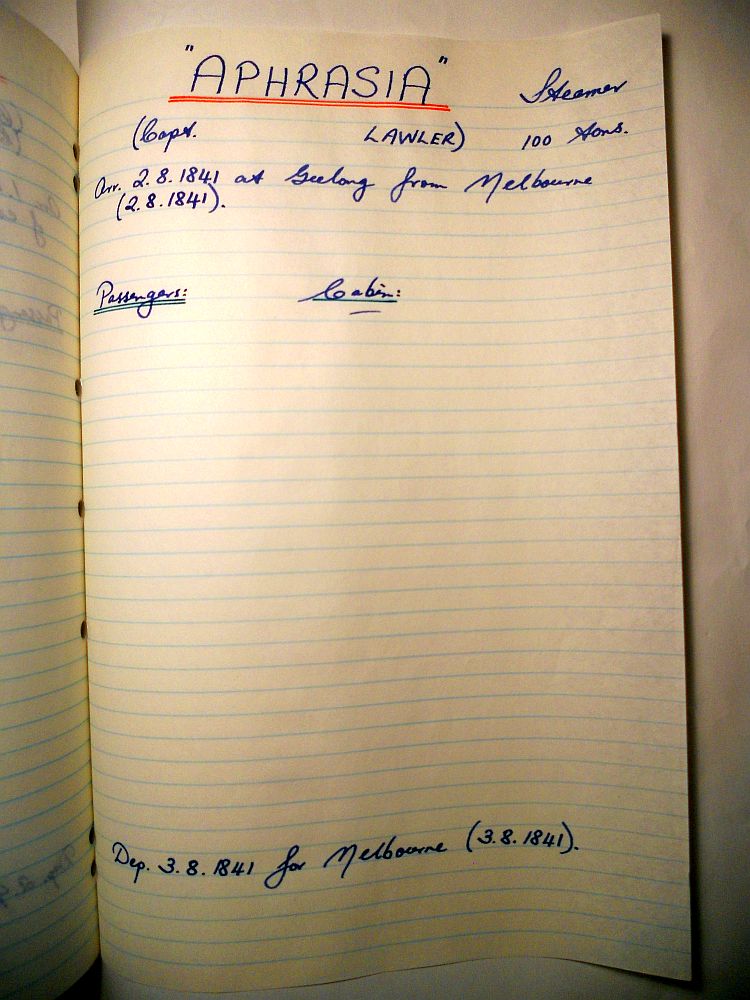 "APHRASIA" Steamer
(Capt. LAWLER) 100 tons.
Arr. 2.8.1841 at Geelong from Melbourne
(2.8.1841).
Passengers: Cabin:
Dep. 3.8.1841 for Melbourne (3.8.1841).